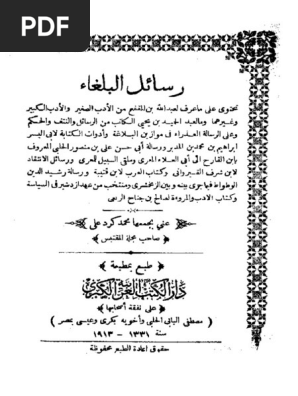 PDF
رسائل البلغاء
تحتوى على ماعرف لعبدالله بن المقفع من الأدب الصغير والأدب الكبير
وغيرهما ومالعبد الحميد بن يحيى الكاتب من الرسائل والنتف والحكم
وعلى الرسالة العذراء فى موازين البلاغة وأدوات الكتابة لابى اليسر
ابراهيم بن محمد بن المدبر ورسالة أبى حسن على بن منصور الحلبى المعروف
بابن القارح الى أبى العلاء المعرى وملقى السبيل للمعرى ورسائل الانتقاد
لابن شرف القيروانى وكتاب العرب لابن قتيبة ورسالة رشيد الدين
الوطواط فيما جرى بينه وبين الزمخشرى ومنتخب من عهد ازدشير فى السياسة
وكتاب الادب والمروءة لصالح بن جناح الربعى
عنى بجمعها محمد كرد على
صاحب مجلة المقتبس
طبع بمطبعة
دار الكتب العربية الكبرى
على نفقة أصحابها
( مصطفى البابى الحلبى وأخويه بكرى وعيسى بمصر )
سنة ١٣٣١ – ١٩١٣
حقوق اعادة الطبع محفوظة